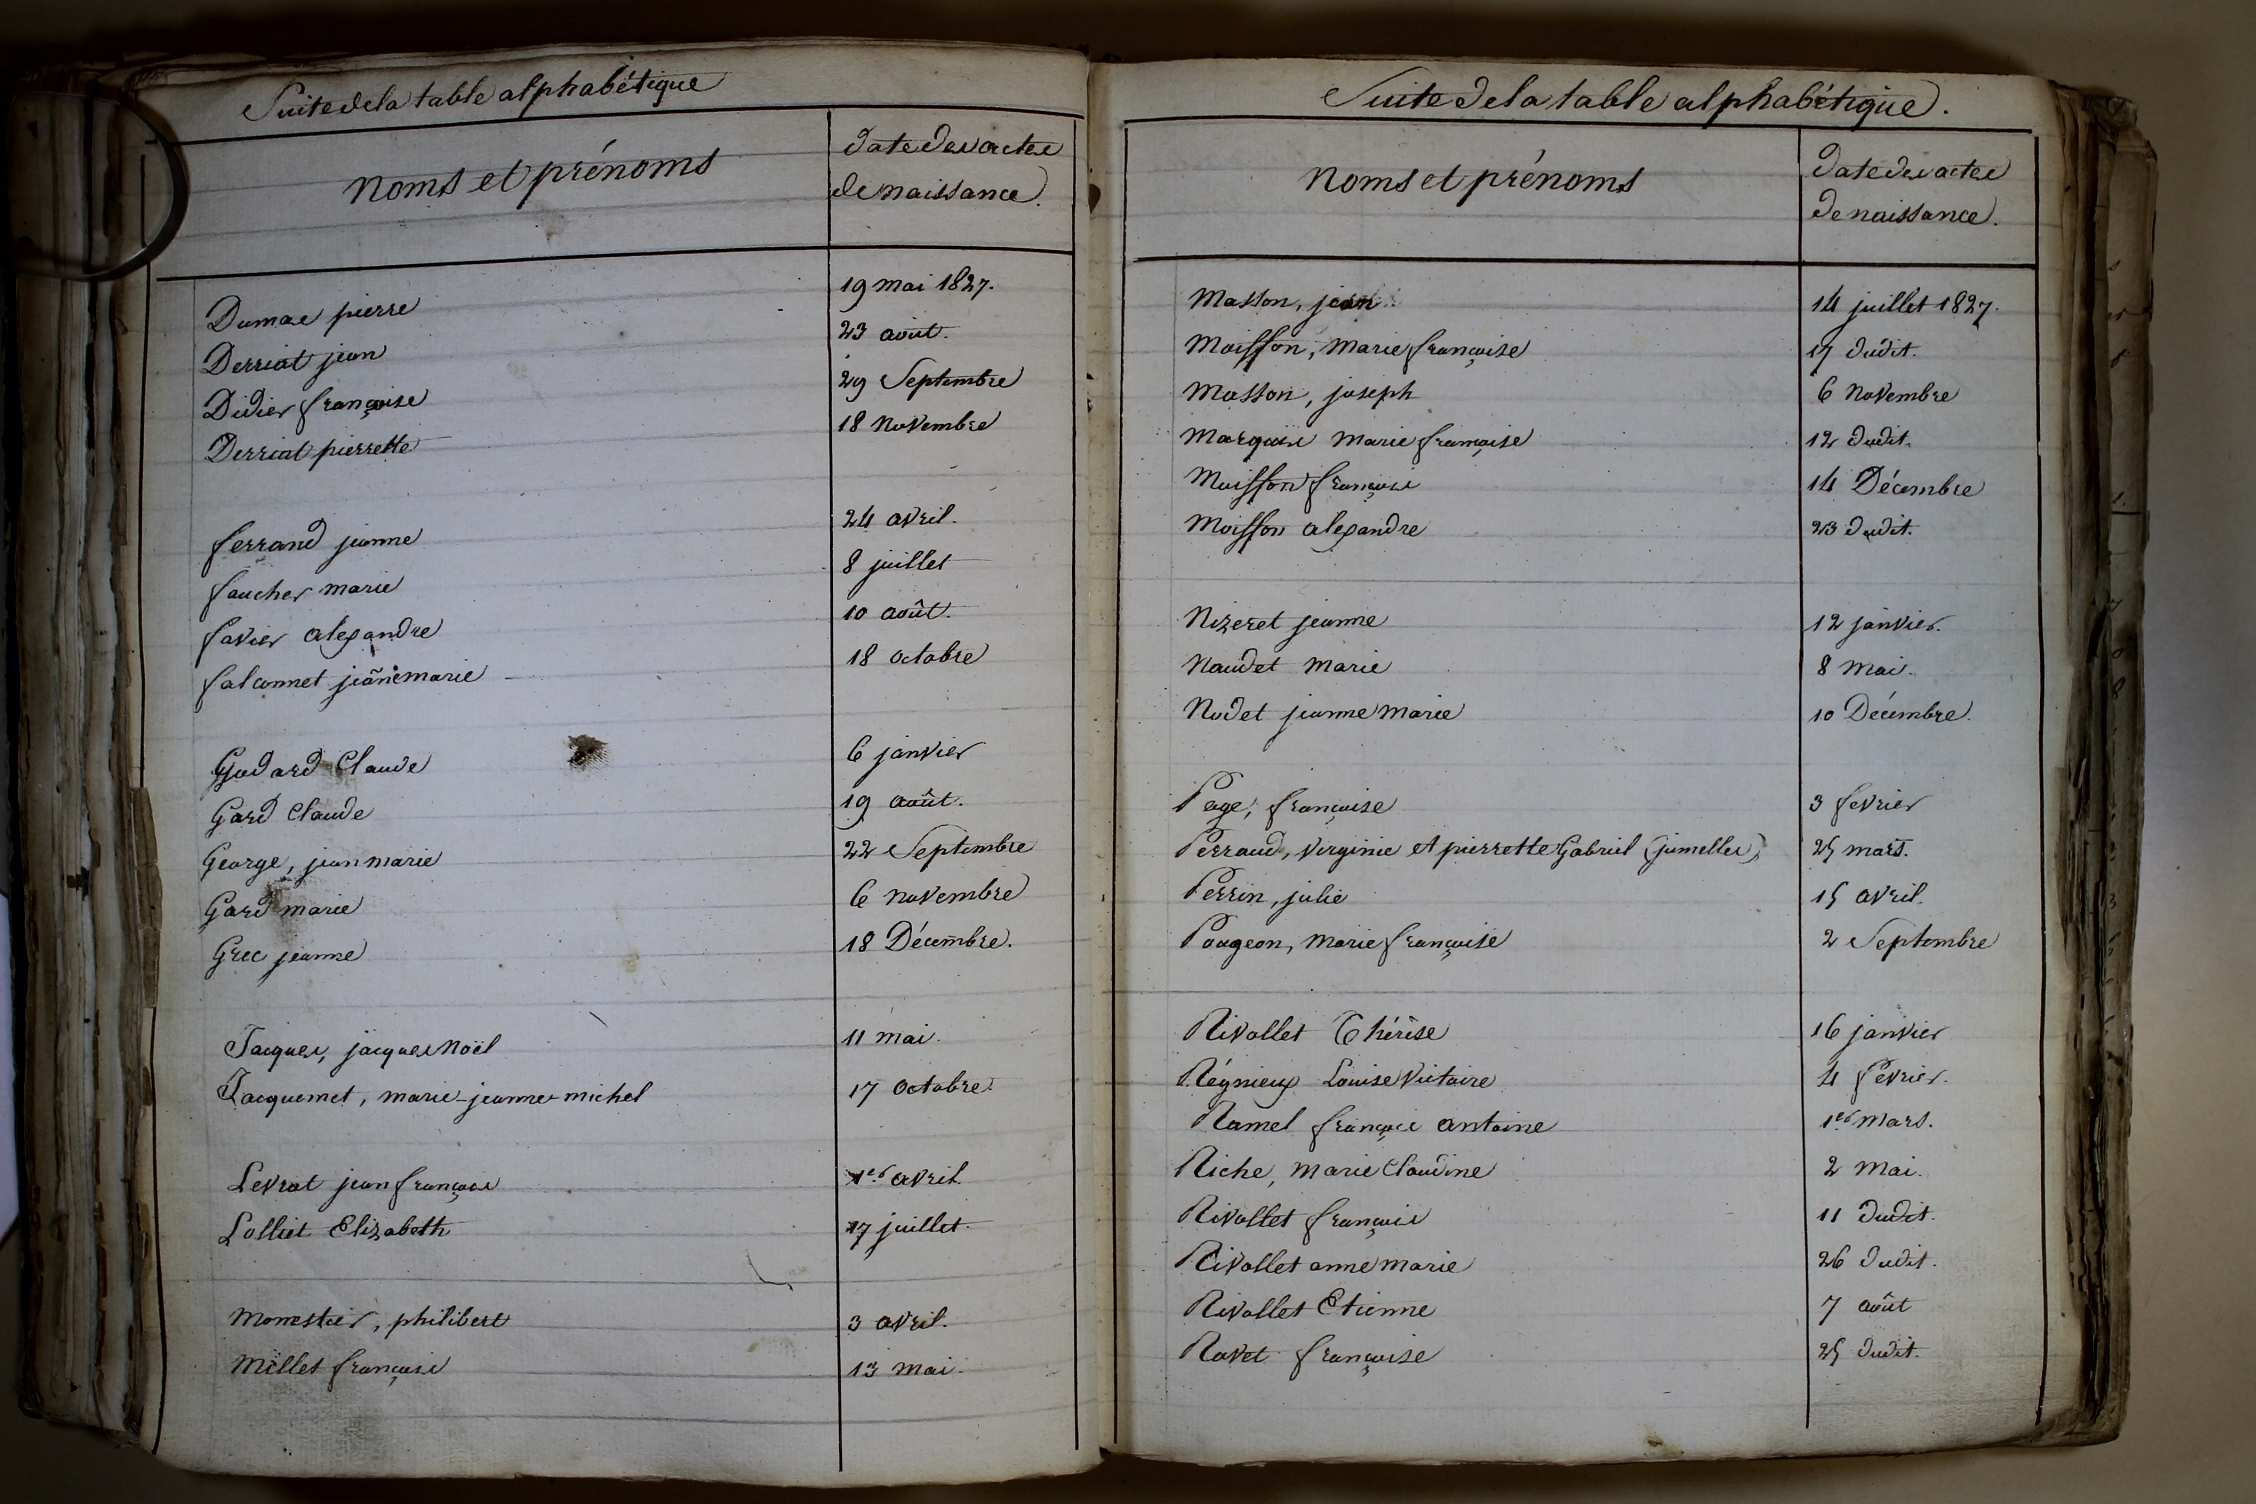 Suite de la table alphabétique
noms et prénoms
date des actes
de naissance.
Dumas pierre 19 mai 1827.
Derriat jean 23 août.
Didier françoise 29 Septembre
Derriat pierrette 18 novembre
ferrand jeanne 24 avril.
faucher marie 8 juillet
favier alexandre 10 août.
falconnet jeanne marie 18 octobre
Godard Claude 6 janvier
Gard Claude 19 août.
George, jean marie 22 Septembre
Gard marie 6 novembre
Grec jeanne 18 Décembre.
Jacques, jacques Noël 11 mai.
Jacquemet, marie-jeanne-michel 17 octobre.
Levrat jean françois 1er avril
Lolliet Elizabeth 17 juillet.
monestier, philibert 3 avril.
millet françois 13 mai.
Suite de la table alphabétique.
noms et prénoms
date des actes
de naissance.
Masson, jean 14 juillet 1827.
Moisson, marie françoise 17 dudit.
Masson, joseph 6 novembre
Marquis marie françoise 12 dudit.
Moisson françois 14 Décembre
Moisson alexandre 23 dudit.
Nizeret jeanne 12 janvier.
Naudet marie 8 mai.
Nodet jeanne marie 10 Décembre.
Page, françoise 3 fevrier
Perraud, virginie et pierrette Gabriel (jumelles) 25 mars.
Perrin, julie 15 avril.
Pougeon, marie françoise 2 Septembre
Rivollet Thérèse 16 janvier
Régnieux Louise Victoire 4 fevrier.
Ramel françois antoine 1er mars.
Riche, marie Claudine 2 mai.
Rivollet françois 11 dudit.
Rivollet anne marie 26 dudit.
Rivollet Etienne 7 août
Ravet françoise 25 dudit.